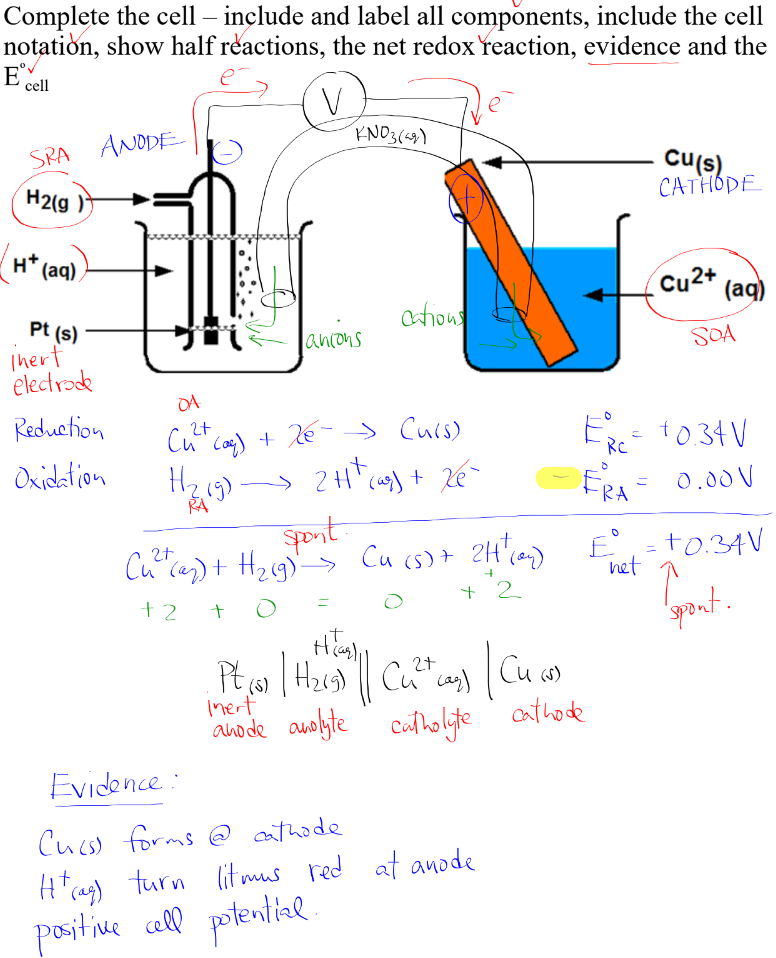 Complete the cell – include and label all components, include the cell
notation, show half reactions, the net redox reaction, evidence and the
E°cell
e⁻
V
e⁻
KNO₃(aq)
ANODE
−
SRA
H₂(g)
Cu(s)
CATHODE
+
H⁺(aq)
Cu²⁺(aq)
SOA
Pt(s)
inert
electrode
anions
cations
OA
Reduction Cu²⁺(aq) + 2e⁻ → Cu(s) E°RC = +0.34V
Oxidation H₂(g) → 2H⁺(aq) + 2e⁻ − E°RA = 0.00V
RA
spont.
Cu²⁺(aq) + H₂(g) → Cu(s) + 2H⁺(aq) E°net = +0.34V
+2 + 0 = 0 + +2
spont.
H⁺(aq)
Pt(s) | H₂(g) || Cu²⁺(aq) | Cu(s)
inert
anode anolyte catholyte cathode
Evidence:
Cu(s) forms @ cathode
H⁺(aq) turn litmus red at anode
positive cell potential.